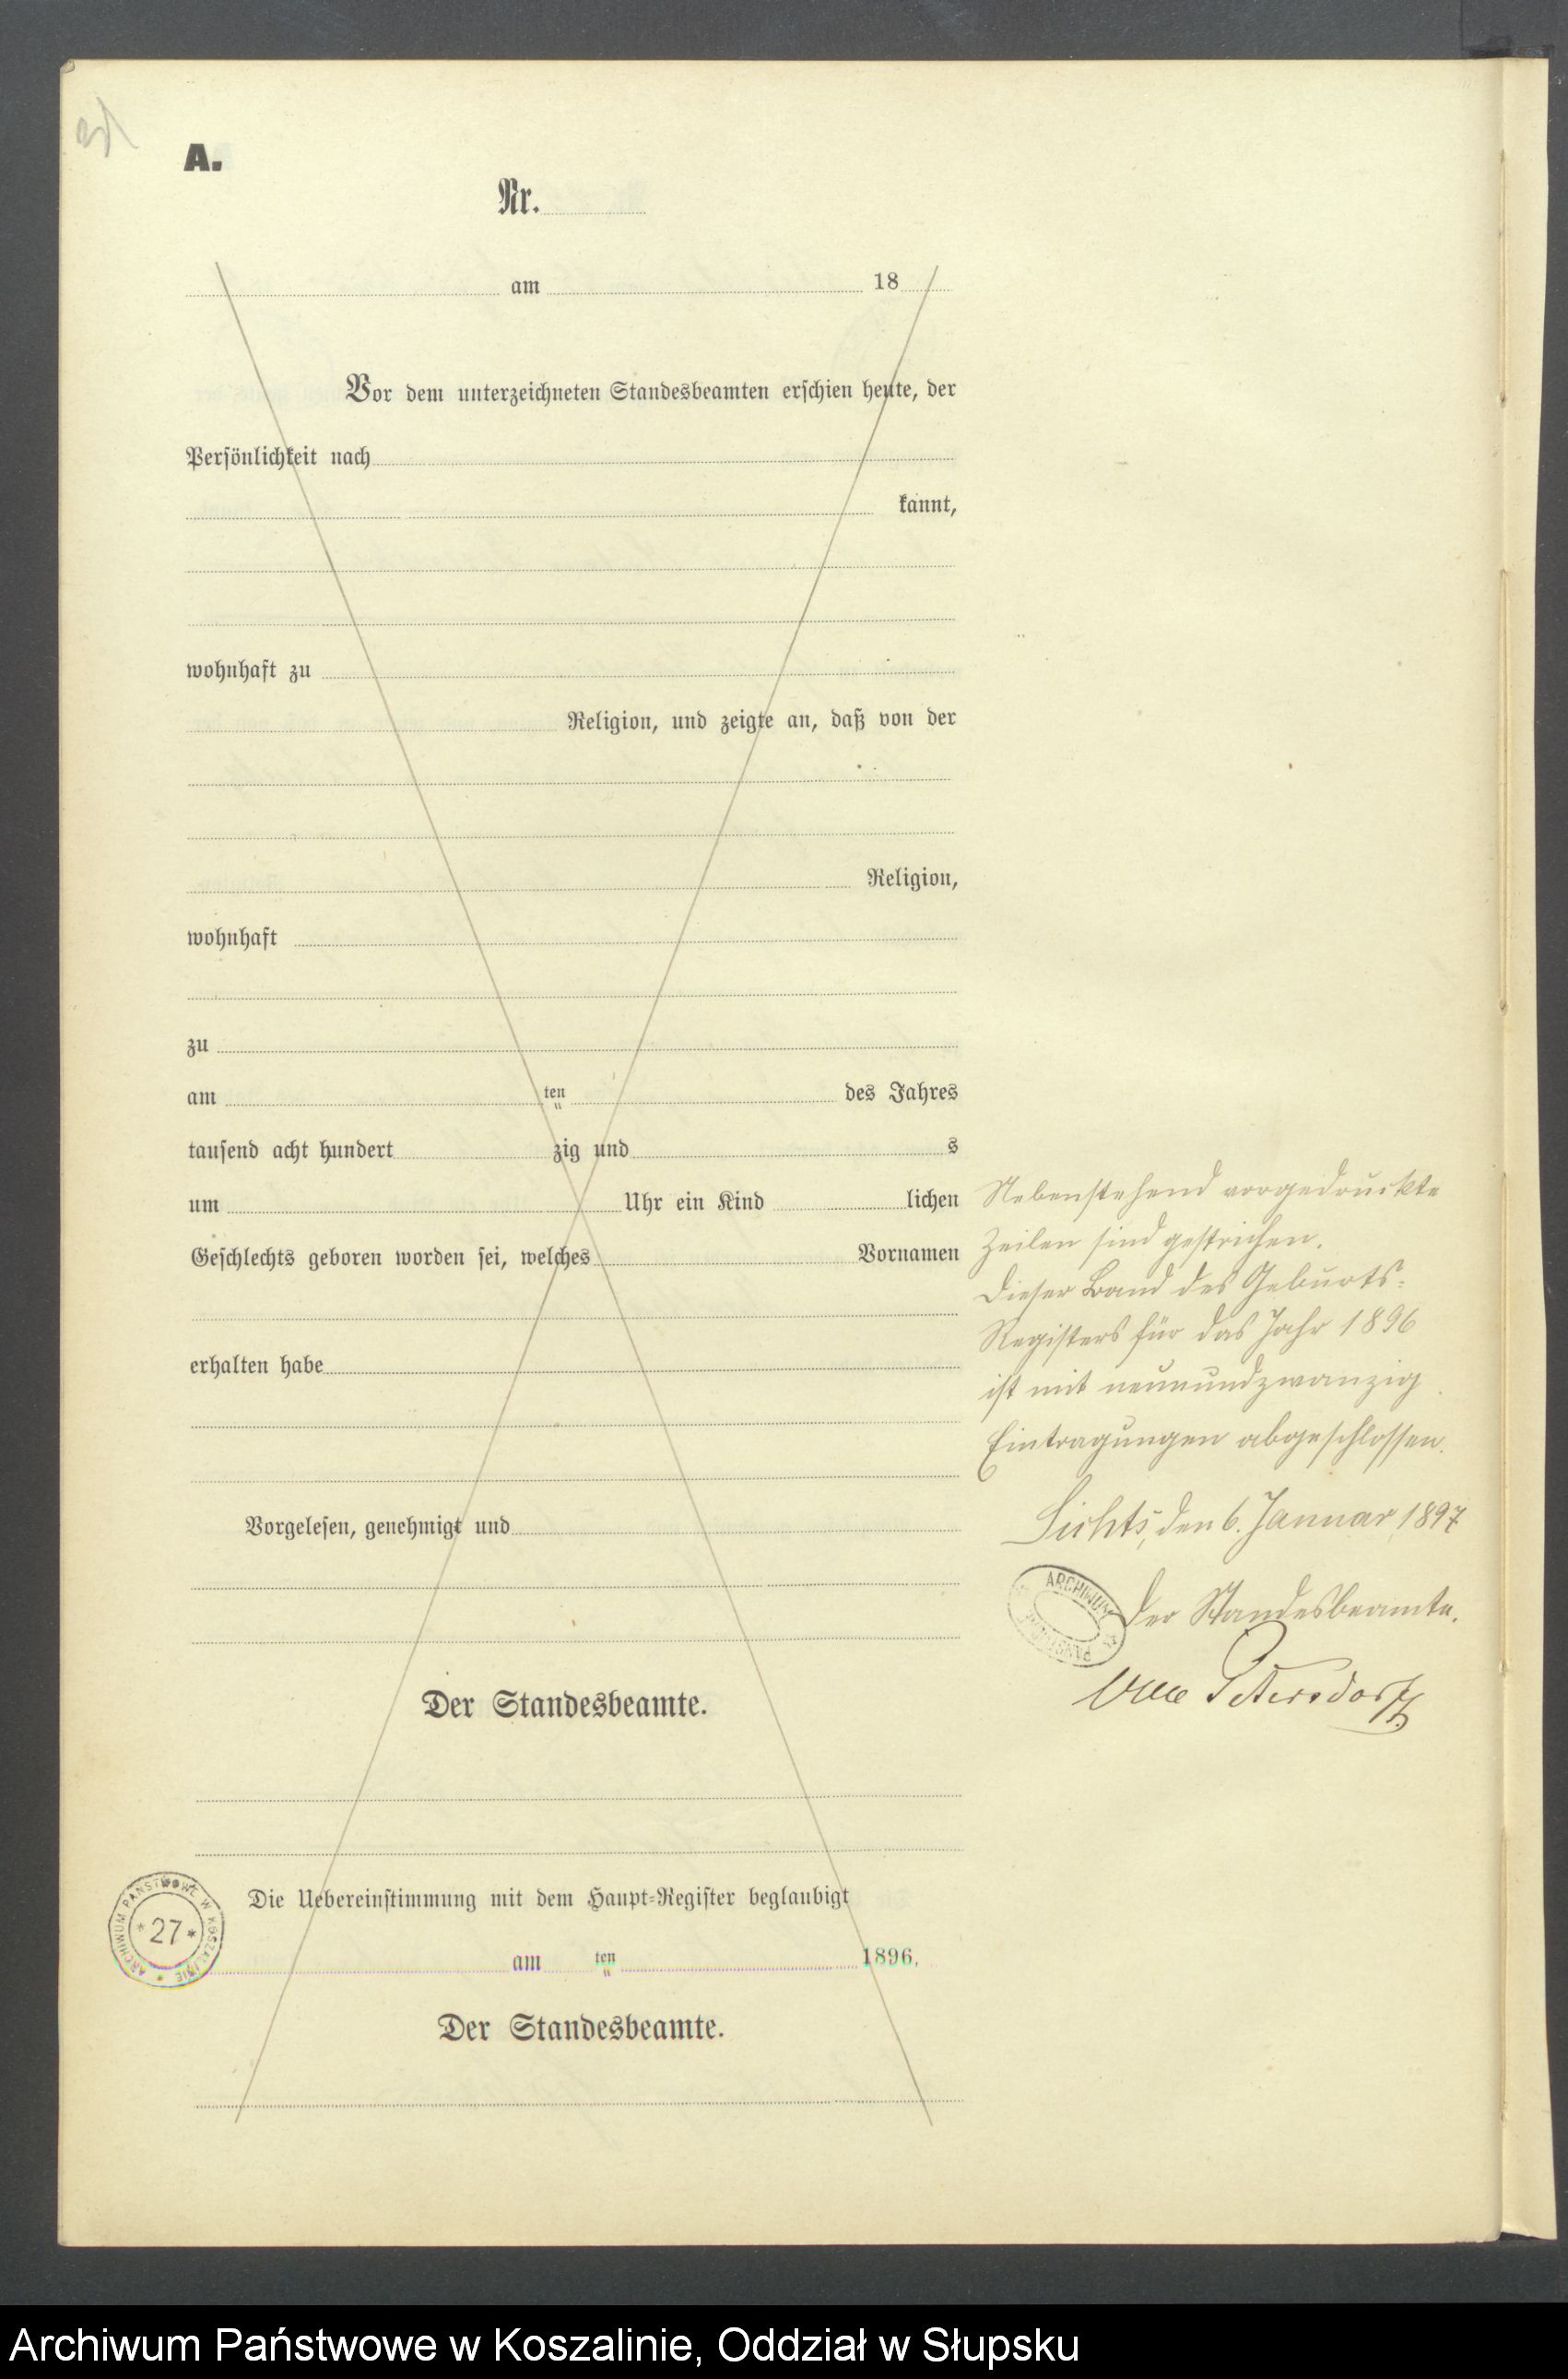 A.
Nr.
am 18
Vor dem unterzeichneten Standesbeamten erschien heute, der
Persönlichkeit nach
kannt,
wohnhaft zu
Religion, und zeigte an, daß von der
Religion,
wohnhaft
zu
am ten des Jahres
tausend acht hundert zig und s
um Uhr ein Kind lichen
Geschlechts geboren worden sei, welches Vornamen
erhalten habe
Vorgelesen, genehmigt und
Der Standesbeamte.
Die Uebereinstimmung mit dem Haupt-Register beglaubigt
am ten 1896.
Der Standesbeamte.
Nebenstehend vorgedruckte
Zeilen sind gestrichen.
Dieser Band des Geburts-
Registers für das Jahr 1896
ist mit neunundzwanzig
Eintragungen abgeschlossen.
den 6. Januar 1897
Der Standesbeamte.
Petersdorff
ARCHIWUM PAŃSTWOWE W KOSZALINIE
*27*
ARCHIWUM
Archiwum Państwowe w Koszalinie, Oddział w Słupsku